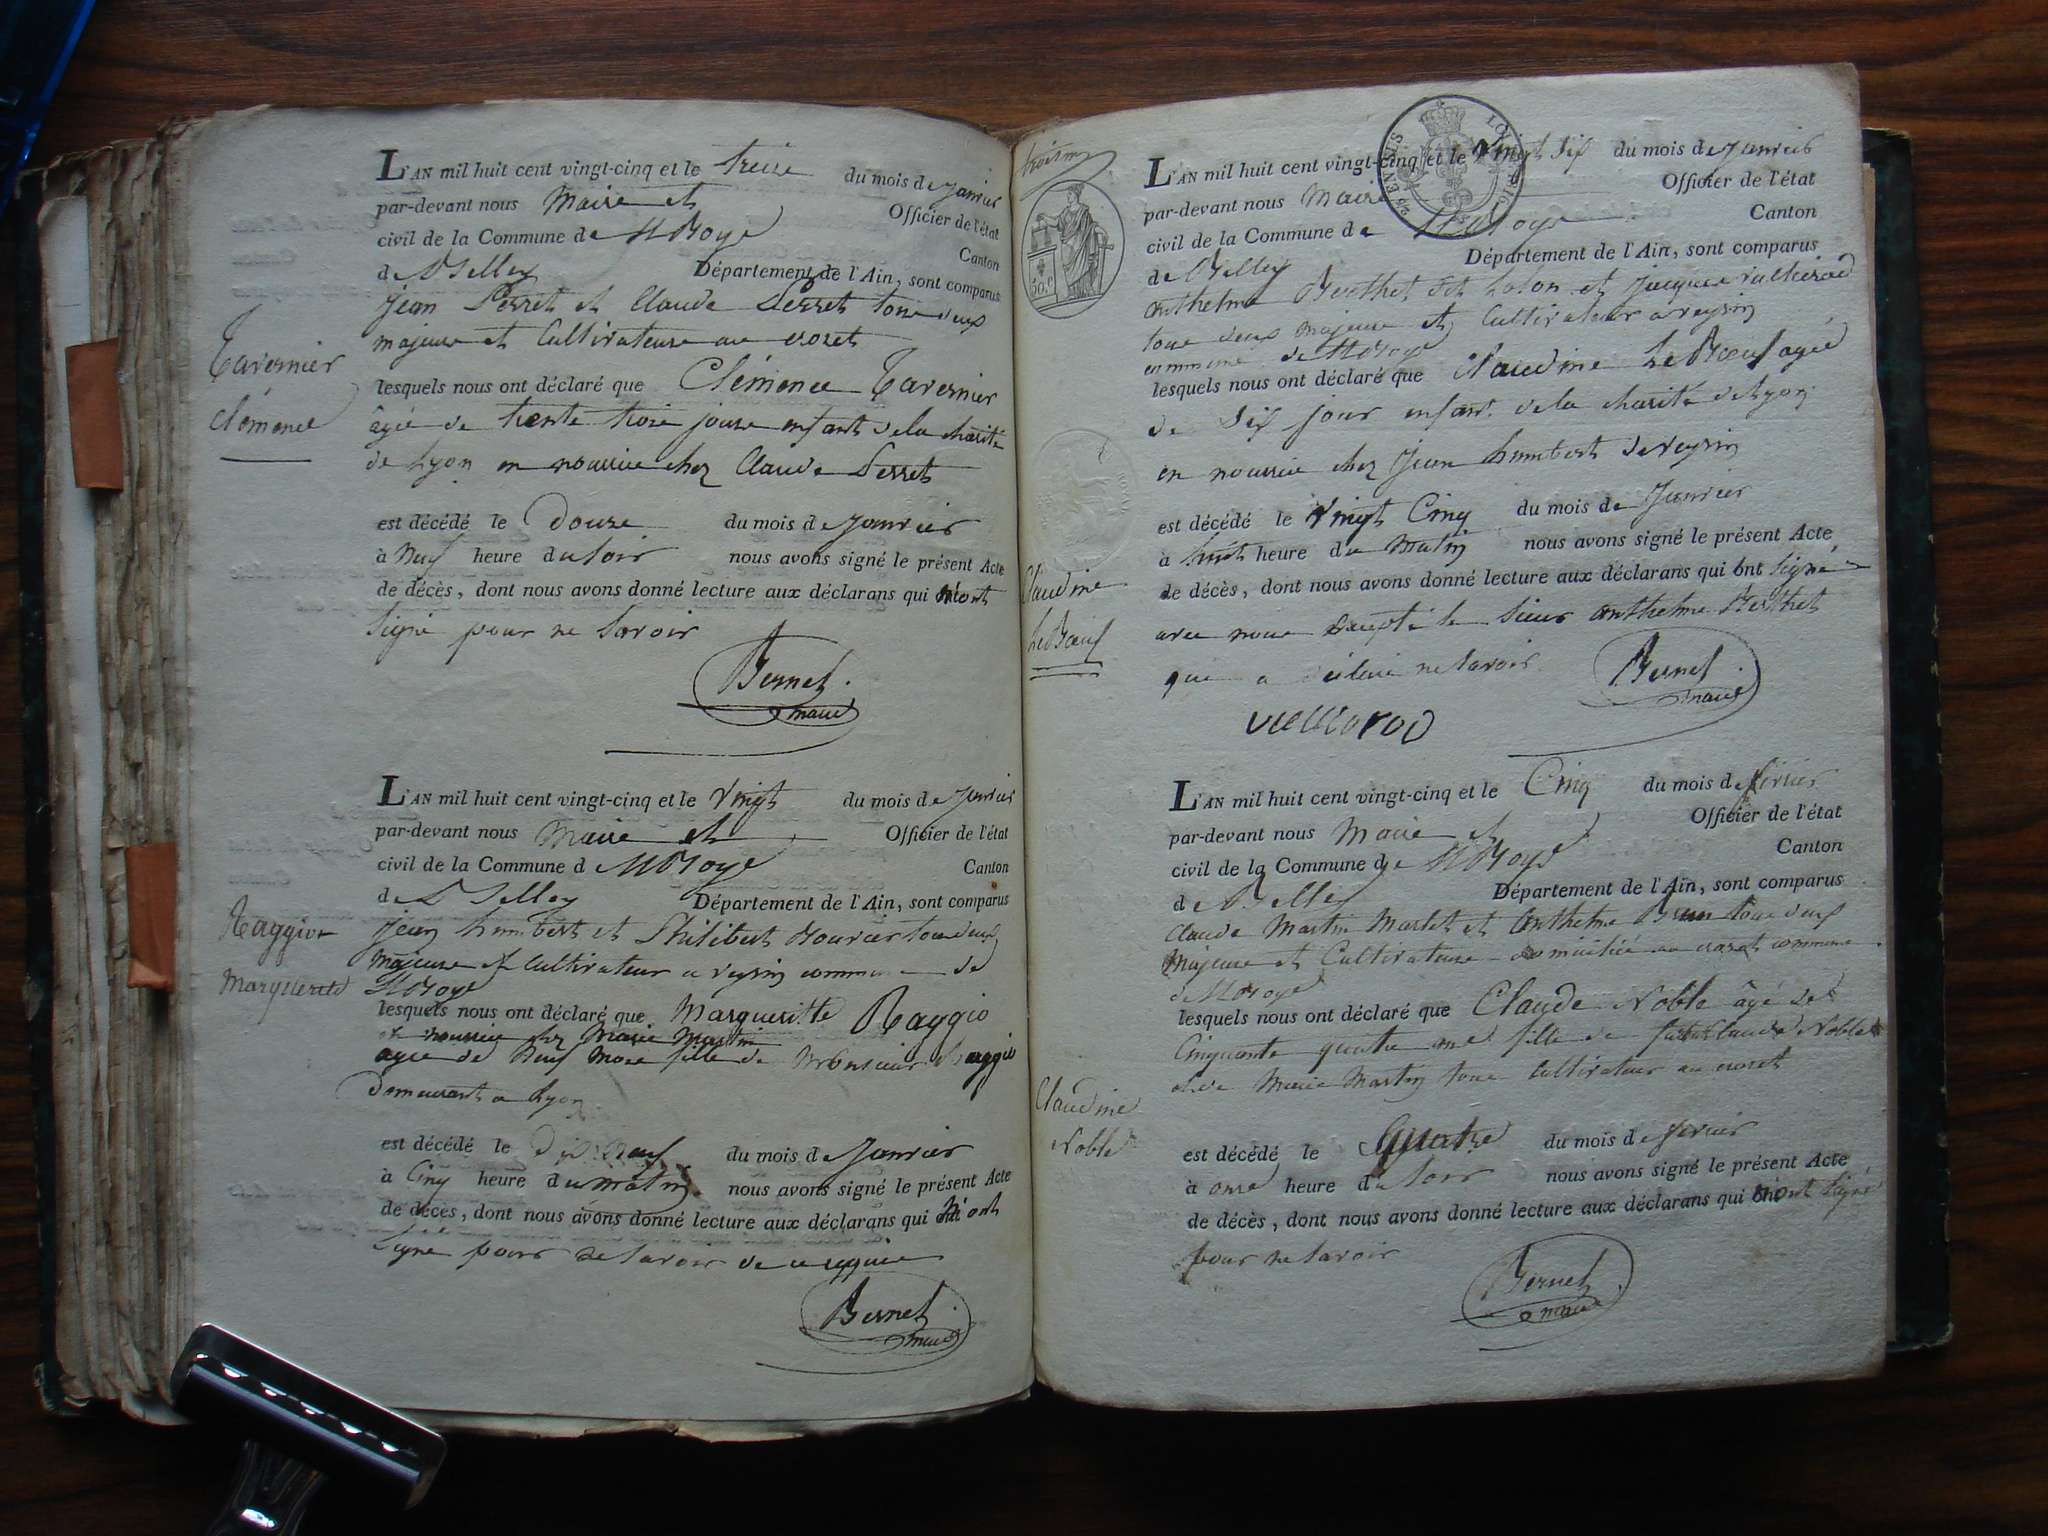 L'AN mil huit cent vingt-cinq et le treize du mois de janvier
par-devant nous Maire et Officier de l'état
civil de la Commune de St Boys Canton
de Belley Département de l'Ain, sont comparus
jean Perret et Claude Perret tous deux
majeurs et Cultivateurs au
Tavernier
Clémence
lesquels nous ont déclaré que Clémence Tavernier
âgée de trente trois jours enfant de la charité
de Lyon en nourrice chez Claude Perret
est décédé le Douze du mois de janvier
à Neuf heure du soir nous avons signé le présent Acte
de décès, dont nous avons donné lecture aux déclarans qui n'ont
signé pour ne savoir
Bernet
maire
L'AN mil huit cent vingt-cinq et le vingt du mois de janvier
par-devant nous Maire et Officier de l'état
civil de la Commune d St Boys Canton
de Belley Département de l'Ain, sont comparus
jean humbert et Philibert tous deux
majeurs et Cultivateur a veyrin commune de
St Boys
Marguerite
lesquels nous ont déclaré que Margueritte Raggio
en nourrice chez Marie Martin
agée de Neuf Mois fille de Monsieur Raggio
Demeurant a Lyon
est décédé le Dix Neuf du mois de Janvier
à Cinq heure du matin nous avons signé le présent Acte
de décès, dont nous avons donné lecture aux déclarans qui n'ont
signé pour ne savoir de ce requis
Bernet
maire
50.c
L'AN mil huit cent vingt-cinq et le vingt six du mois de janvier
par-devant nous Maire Officier de l'état
civil de la Commune de St Boys Canton
de Belley Département de l'Ain, sont comparus
anthelme Berthet dit et Jacques
tous deux majeurs et Cultivateur a veyrin
commune de St Boys
lesquels nous ont déclaré que Claudine LeBoeuf agée
de Dix jour enfant de la charité de Lyon
en nourrice chez Jean humbert de veyrin
est décédé le vingt Cinq du mois de Janvier
à huit heure du Matin nous avons signé le présent Acte
Claudine
LeBoeuf
de décès, dont nous avons donné lecture aux déclarans qui ont signé
avec nous excepté le sieur anthelme Berthet
que a ne savoir
Bernet
maire
L'AN mil huit cent vingt-cinq et le Cinq du mois de fevrier
par-devant nous Maire et Officier de l'état
civil de la Commune de St Boys Canton
de Belley Département de l'Ain, sont comparus
Claude Martin et anthelme tous deux
Majeurs et Cultivateurs domiciliés au commune
d St Boys
lesquels nous ont déclaré que Claude Noble âgé de
Cinquante quatre fille de Claude Noble
et de Marie Martin tous Cultivateur au
Claudine
Noble
est décédé le Quatre du mois de fevrier
à onze heure du soir nous avons signé le présent Acte
de décès, dont nous avons donné lecture aux déclarans qui n'ont signé
pour ne savoir
Bernet
maire